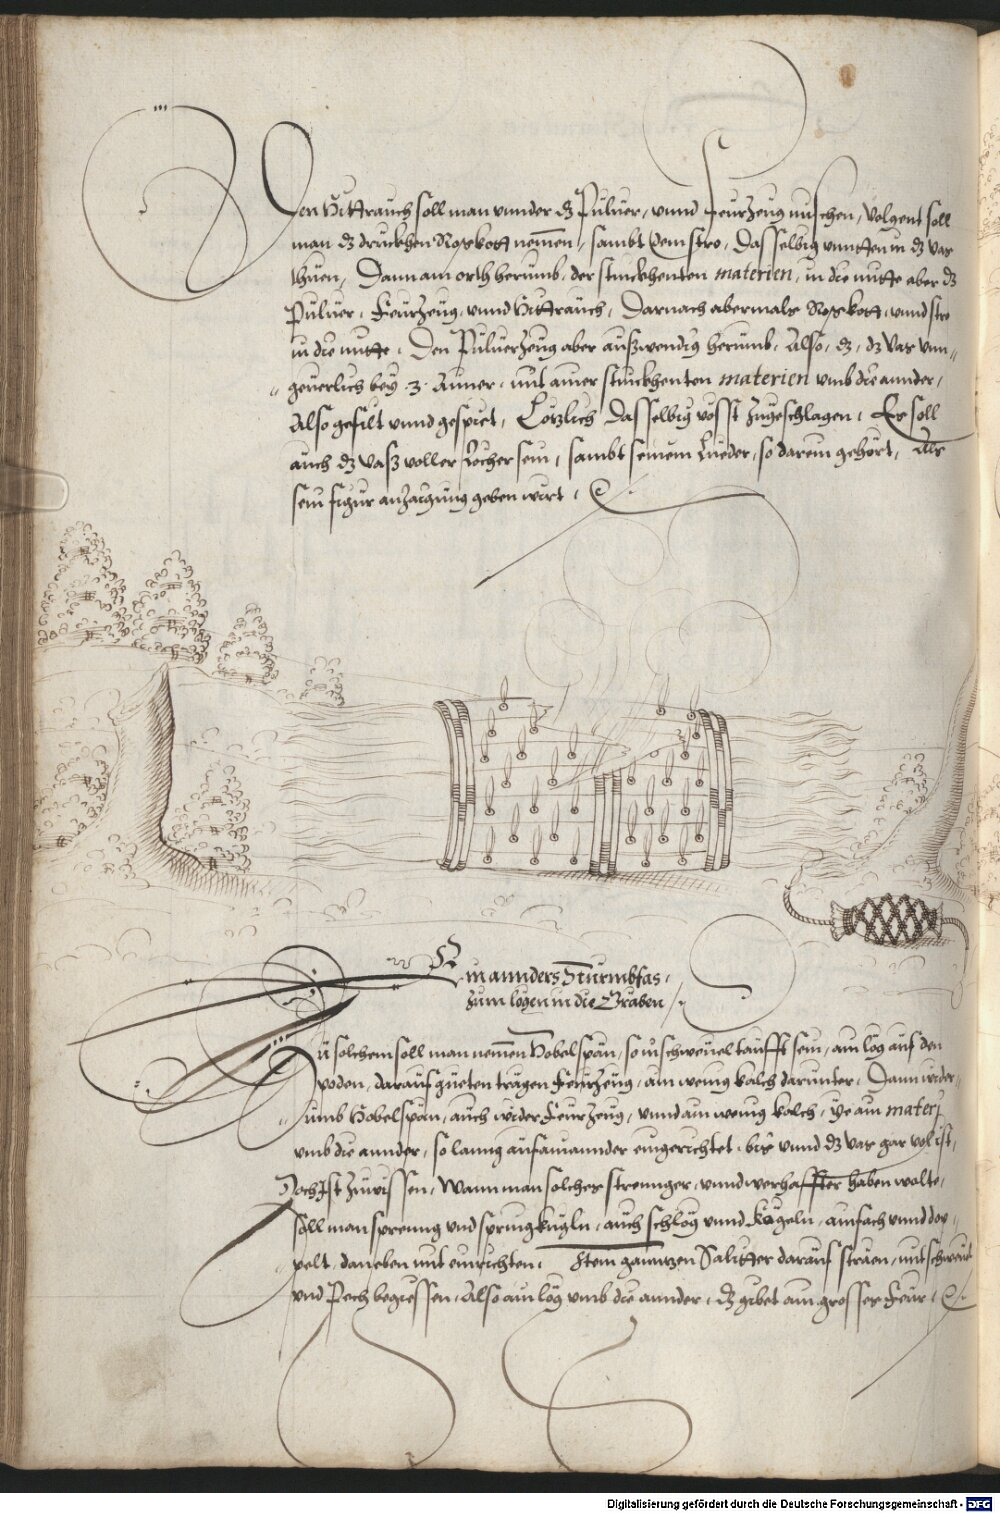 Den Hittrauch soll man vnnder dz Puluer, vnnd Feurzeug mischen, volgent soll
man dz druckhen Roßkott nemen, sambt dem stro, dasselbig vnnden in dz vas
thuen, Dann am orth herumb, der stinckhenten materien, in die mitte aber dz
Puluer, Feurzeug, vnnd Hittrauch, Darnach abermals Roßkott, vnnd stro
in die mitte, Den Puluerzeug aber außwendig herumb, Also, dz, dz vas vnn-
geuerlich bey .3. Aimer, mit ainer stinckhenten materien vmb die annder,
Also gefilt vnnd gespiet, Lötzlich dasselbig vösst zugeschlagen, Es soll
auch dz Vass voller Locher sein, sambt seinem Lueder, so darein gehört, Als
sein figur anzaigung geben wirt,
Ein annders Sturmbfas,
zum lögen in die Graben,
Zu solchem soll man nemen Hobelspän, so in schweuel taufft sein, ain lög auf den
poden, darauf gueten trägen Feurzeug, ain wenig kalch darunter, Dann wider-
umb Hobelspän, auch wider Feurzeug, vnnd ain wenig kalch, ye ain matery
vmb die annder, so lanng aufainannder eingerichtet, bis vnnd dz vas gar vol ist,
Doch Ist zuwissen, Wann man solches strennger, vnnd werhaffter haben wolte,
soll man spreng vnd sprungkugln, auch schlög vnnd Kögeln, ainfach vnnd dop-
pelt, daneben mit einrichten, Item gannzen Salitter darauf sträen, mit schweuel
vnd Pech begiessen, Also ain lög vmb die annder, dz gibet ain grosses Feur,
Digitalisierung gefördert durch die Deutsche Forschungsgemeinschaft - DFG